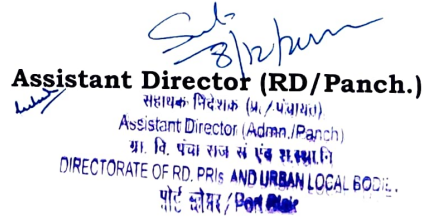 8/12/
Assistant Director (RD/Panch.)
सहायक निदेशक (प्र./पंचायत)
Assistant Director (Admn./Panch)
ग्रा. वि. पंचा राज सं एवं श.स्था.नि
DIRECTORATE OF RD, PRIs AND URBAN LOCAL BODIE.
पोर्ट ब्लेयर / Port Blair